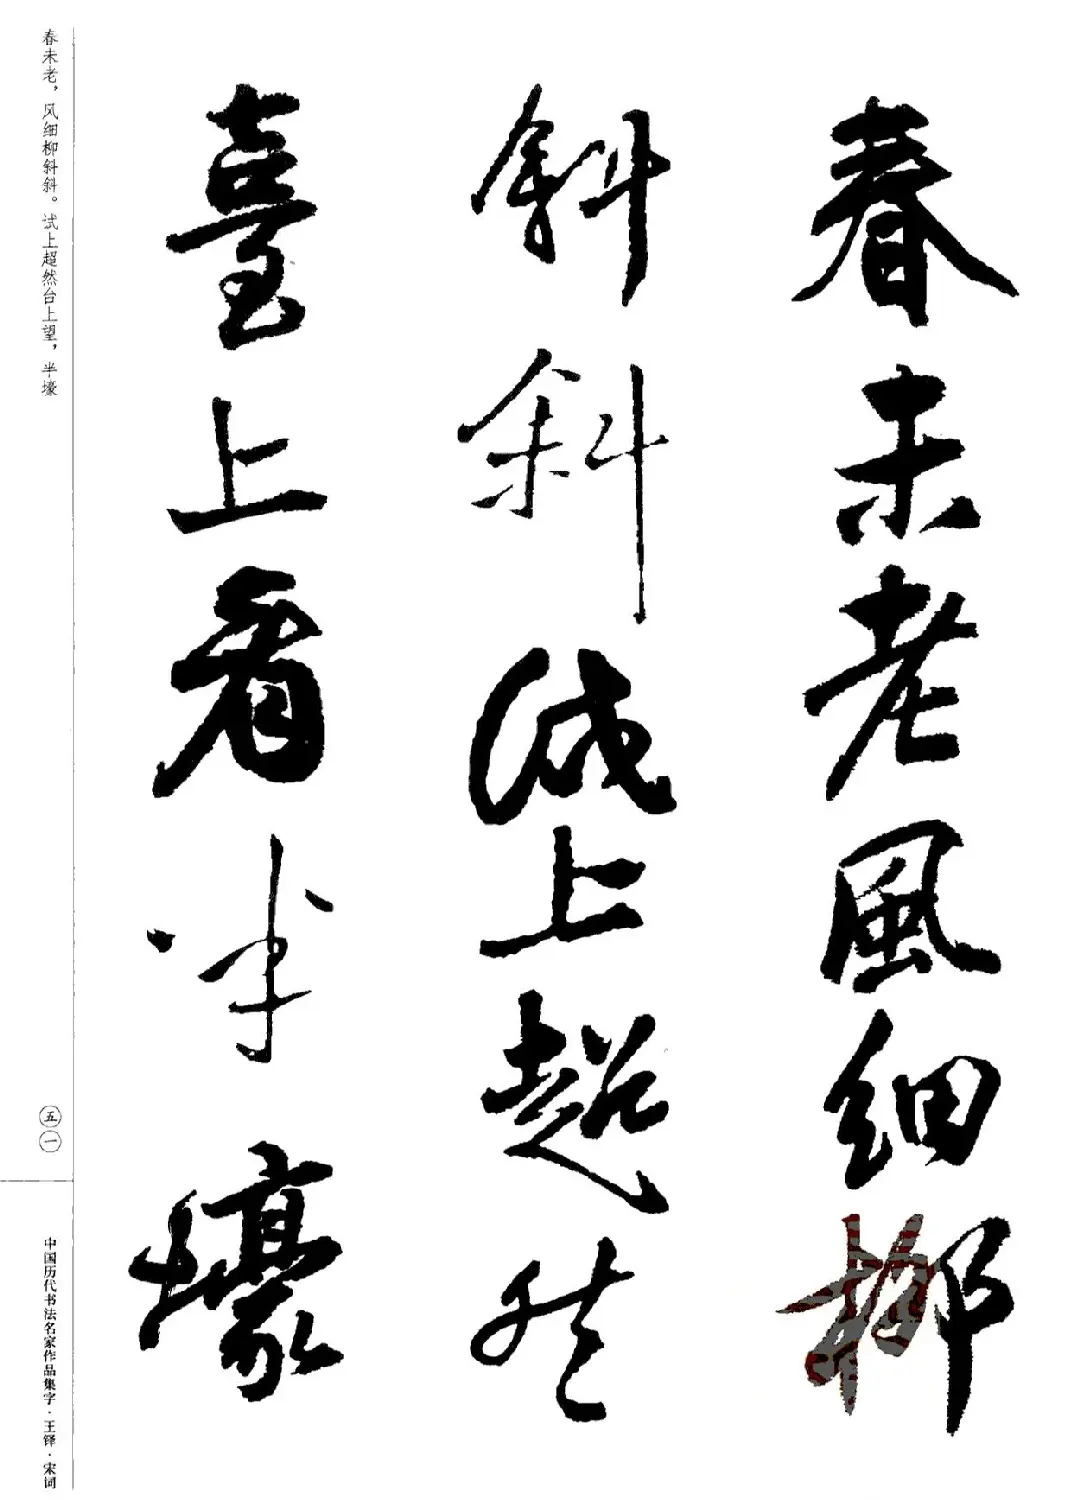 春未老風细柳
斜斜试上超然
臺上看半壕
春未老，风细柳斜斜。试上超然台上望，半壕
五一
中国历代书法名家作品集字·王铎·宋词